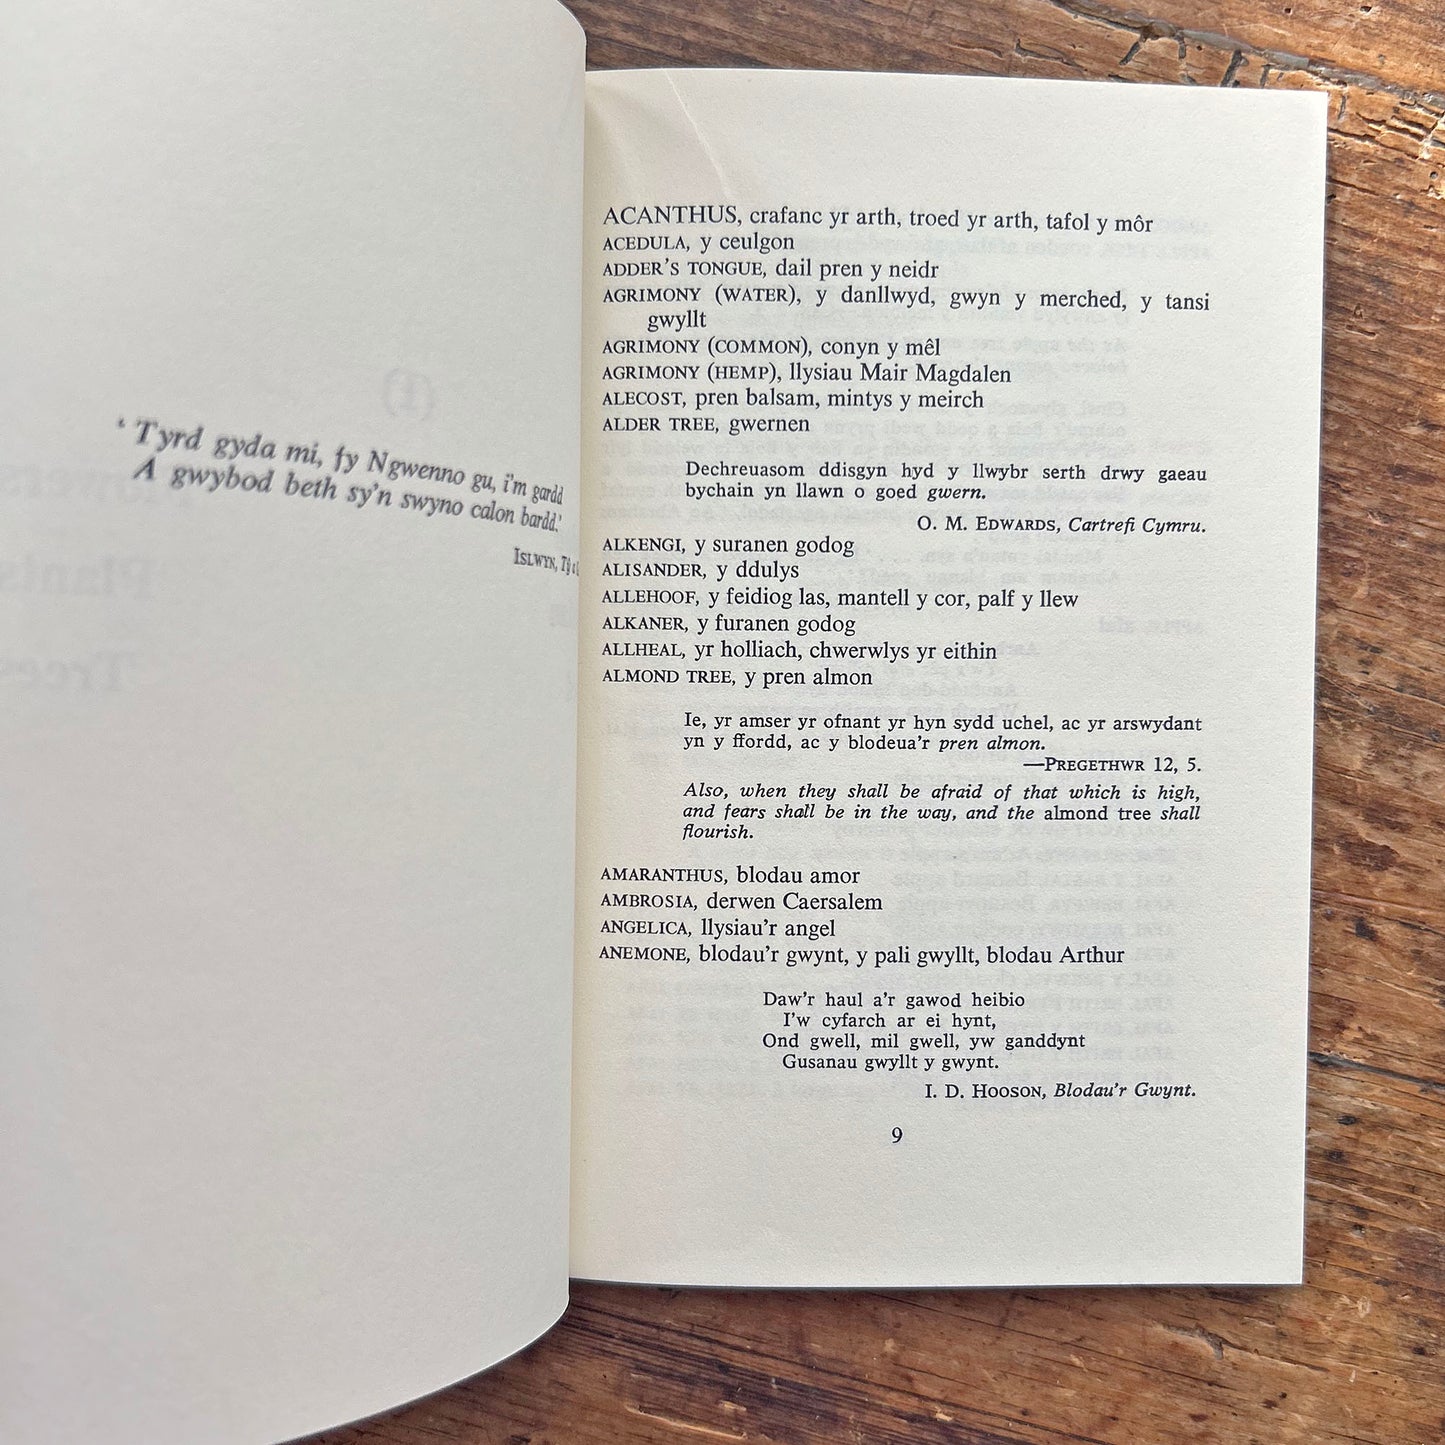 ‘ Tyrd gyda mi, fy Ngwenno gu, i’m gardd
A gwybod beth sy’n swyno calon bardd.’
ISLWYN,
ACANTHUS, crafanc yr arth, troed yr arth, tafol y môr
ACEDULA, y ceulgon
ADDER’S TONGUE, dail pren y neidr
AGRIMONY (WATER), y danllwyd, gwyn y merched, y tansi
gwyllt
AGRIMONY (COMMON), conyn y mêl
AGRIMONY (HEMP), llysiau Mair Magdalen
ALECOST, pren balsam, mintys y meirch
ALDER TREE, gwernen
Dechreuasom ddisgyn hyd y llwybr serth drwy gaeau
bychain yn llawn o goed gwern.
O. M. EDWARDS, Cartrefi Cymru.
ALKENGI, y suranen godog
ALISANDER, y ddulys
ALLEHOOF, y feidiog las, mantell y cor, palf y llew
ALKANER, y furanen godog
ALLHEAL, yr holliach, chwerwlys yr eithin
ALMOND TREE, y pren almon
Ie, yr amser yr ofnant yr hyn sydd uchel, ac yr arswydant
yn y ffordd, ac y blodeua’r pren almon.
—PREGETHWR 12, 5.
Also, when they shall be afraid of that which is high,
and fears shall be in the way, and the almond tree shall
flourish.
AMARANTHUS, blodau amor
AMBROSIA, derwen Caersalem
ANGELICA, llysiau’r angel
ANEMONE, blodau’r gwynt, y pali gwyllt, blodau Arthur
Daw’r haul a’r gawod heibio
I’w cyfarch ar ei hynt,
Ond gwell, mil gwell, yw ganddynt
Gusanau gwyllt y gwynt.
I. D. HOOSON, Blodau’r Gwynt.
9